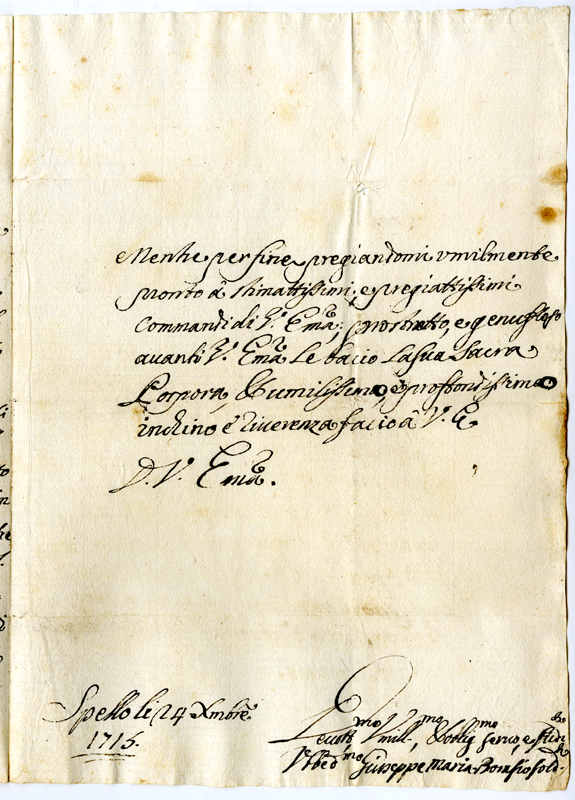 Mentre per fine pregiandomi umilmente
pronto â stimattissimi, e pregiattissimi
Commandi di V.ª Emã; prostratto, e genuflesso
avanti V.ª Emã le bacio la sua Sacra
Porpora, & umilissimo, e proffondissimo
inchino e riverenza facio â V.ª E
D. V.ª Emã.
Spello li 24 Xmbrẽ
1715.
mo Umill.mo, & oblig.mo servo, e
ed.mo Giuseppe Maria